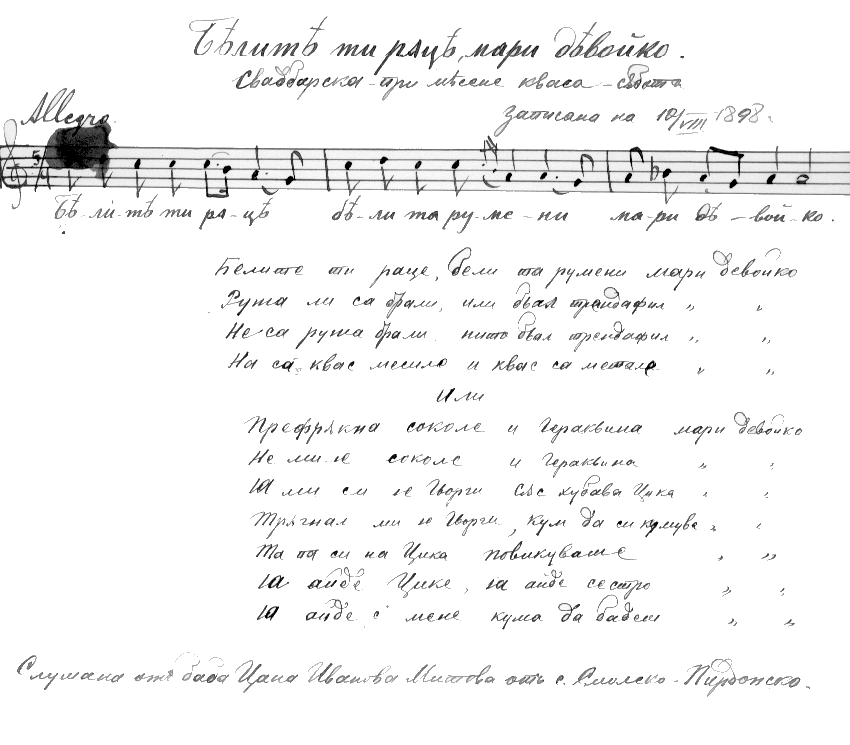 Бѣлитѣ ти рѫцѣ, мари дѣвойко.
Сватбарска - три месене кваса - сѫбота
Allegro.
записана на 10/VIII 1898.
Бѣ-ли-тѣ ти рѫ-цѣ бѣ-ли та ру-ме-ни ма-ри дѣ-вой-ко.
Белите ти раце, бели та румени мари девойко
Ружа ли са брали, или бѣл трендафил „ „
Не са ружа брали нито бѣл трендафил „ „
На са квас месила и квас са метале „ „
Или
Префрѫкна соколе и Гераквина мари девойко
Не ми й соколе и Гераквина „ „
Ia ми си й Гьорги сѫс хубава Цика „ „
Трѫгнал ми й Гьорги, кум да си кумува „ „
Та па си на Цика повикуваше „ „
Ia айде Цике, ia айде сестро „ „
Ia айде с мене кума да бадеш „ „
Слушана отъ баба Цана Иванова Митова отъ с. Смолско - Пирдопско.